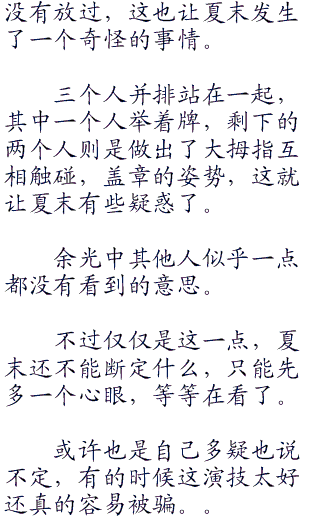 没有放过，这也让夏末发生
了一个奇怪的事情。
三个人并排站在一起，
其中一个人举着牌，剩下的
两个人则是做出了大拇指互
相触碰，盖章的姿势，这就
让夏末有些疑惑了。
余光中其他人似乎一点
都没有看到的意思。
不过仅仅是这一点，夏
末还不能断定什么，只能先
多一个心眼，等等在看了。
或许也是自己多疑也说
不定，有的时候这演技太好
还真的容易被骗。。